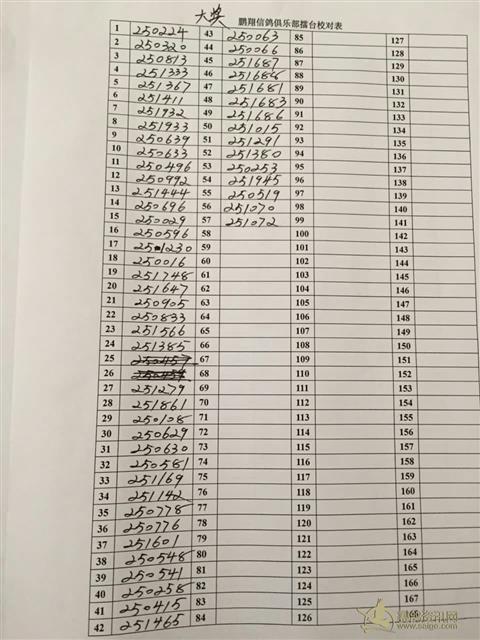 大奖 鹏翔信鸽俱乐部擂台校对表
1 250224 43 250063 85 127
2 250320 44 250066 86 128
3 250813 45 251687 87 129
4 251333 46 251688 88 130
5 251367 47 251681 89 131
6 251411 48 251683 90 132
7 251932 49 251686 91 133
8 251933 50 251015 92 134
9 250639 51 251291 93 135
10 250633 52 251380 94 136
11 250496 53 250253 95 137
12 250992 54 251945 96 138
13 251444 55 250519 97 139
14 250696 56 251070 98 140
15 250029 57 251072 99 141
16 250596 58 100 142
17 251230 59 101 143
18 250016 60 102 144
19 251748 61 103 145
20 251647 62 104 146
21 250905 63 105 147
22 250833 64 106 148
23 251566 65 107 149
24 251385 66 108 150
25 67 109 151
26 68 110 152
27 251279 69 111 153
28 251861 70 112 154
29 250108 71 113 155
30 250629 72 114 156
31 250630 73 115 157
32 250581 74 116 158
33 251169 75 117 159
34 251142 76 118 160
35 250778 77 119 161
36 250776 78 120 162
37 251601 79 121 163
38 250548 80 122 164
39 250541 81 123 165
40 250258 82 124 166
41 250415 83 125 167
42 251465 84 126 168
www.saige.com